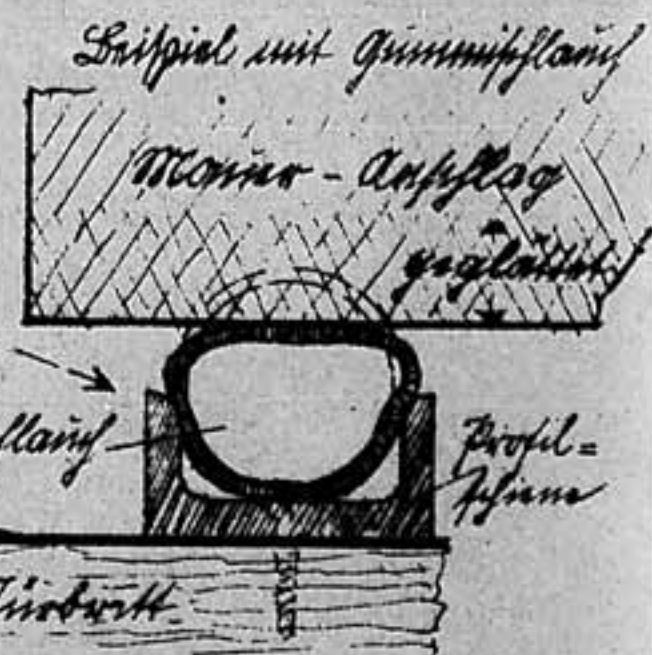 Beispiel mit Gummischlauch
Mauer-Anschlag
geglättet
hlauch
Profil=
schiene
Türbrett